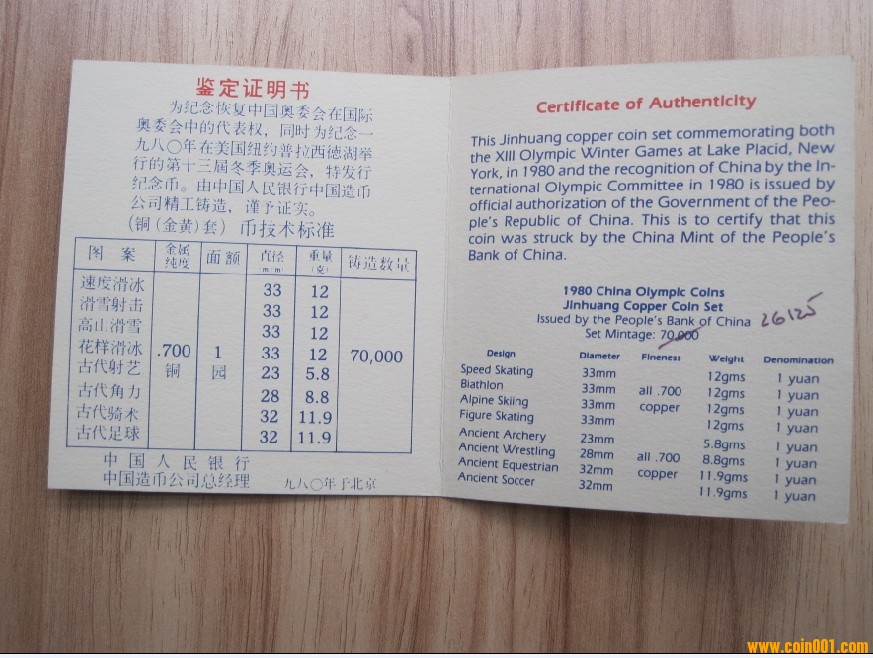 鉴定证明书
为纪念恢复中国奥委会在国际
奥委会中的代表权，同时为纪念一
九八〇年在美国纽约普拉西德湖举
行的第十三届冬季奥运会，特发行
纪念币。由中国人民银行中国造币
公司精工铸造，谨予证实。
(铜(金黄)套) 币技术标准
图 案 金属纯度 面额 直径(mm) 重量(克) 铸造数量
速度滑冰 33 12
滑雪射击 33 12
高山滑雪 33 12
花样滑冰 .700 1 33 12 70,000
古代射艺 铜 园 23 5.8
古代角力 28 8.8
古代骑术 32 11.9
古代足球 32 11.9
中国人民银行
中国造币公司总经理 九八〇年于北京
Certificate of Authenticity
This Jinhuang copper coin set commemorating both
the XIII Olympic Winter Games at Lake Placid, New
York, in 1980 and the recognition of China by the In-
ternational Olympic Committee in 1980 is issued by
official authorization of the Government of the Peo-
ple's Republic of China. This is to certify that this
coin was struck by the China Mint of the People's
Bank of China.
1980 China Olympic Coins
Jinhuang Copper Coin Set
Issued by the People's Bank of China 26125
Set Mintage: 70,000
Design Diameter Fineness Weight Denomination
Speed Skating 33mm 12gms 1 yuan
Biathlon 33mm all .700 12gms 1 yuan
Alpine Skiing 33mm copper 12gms 1 yuan
Figure Skating 33mm 12gms 1 yuan
Ancient Archery 23mm 5.8gms 1 yuan
Ancient Wrestling 28mm all .700 8.8gms 1 yuan
Ancient Equestrian 32mm copper 11.9gms 1 yuan
Ancient Soccer 32mm 11.9gms 1 yuan
www.coin001.com